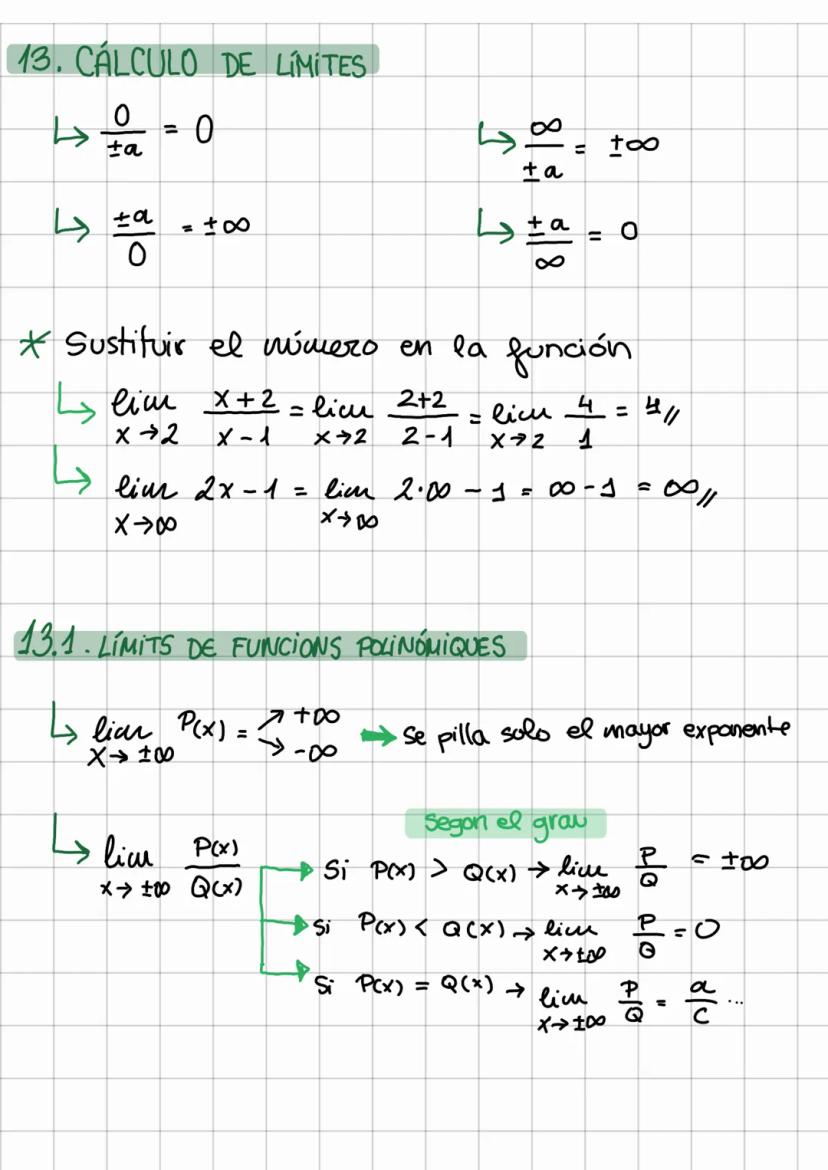 13. CÁLCULO DE LÍMITES
↳ 0/±a = 0
↳ ∞/±a = ±∞
↳ ±a/0 = ±∞
↳ ±a/∞ = 0
* Sustituir el número en la función
↳ lim x→2 x+2/x-1 = lim x→2 2+2/2-1 = lim x→2 4/1 = 4//
↳ lim x→∞ 2x-1 = lim x→∞ 2·∞ - 1 = ∞ - 1 = ∞//
13.1. LÍMITS DE FUNCIONS POLINÓMIQUES
↳ lim x→±∞ P(x) = ↗ +∞ ↘ -∞ ➡ se pilla solo el mayor exponente
segon el grau
↳ lim x→±∞ P(x)/Q(x)
Si P(x) > Q(x) → lim x→±∞ P/Q = ±∞
Si P(x) < Q(x) → lim x→±∞ P/Q = 0
Si P(x) = Q(x) → lim x→±∞ P/Q = a/c ...